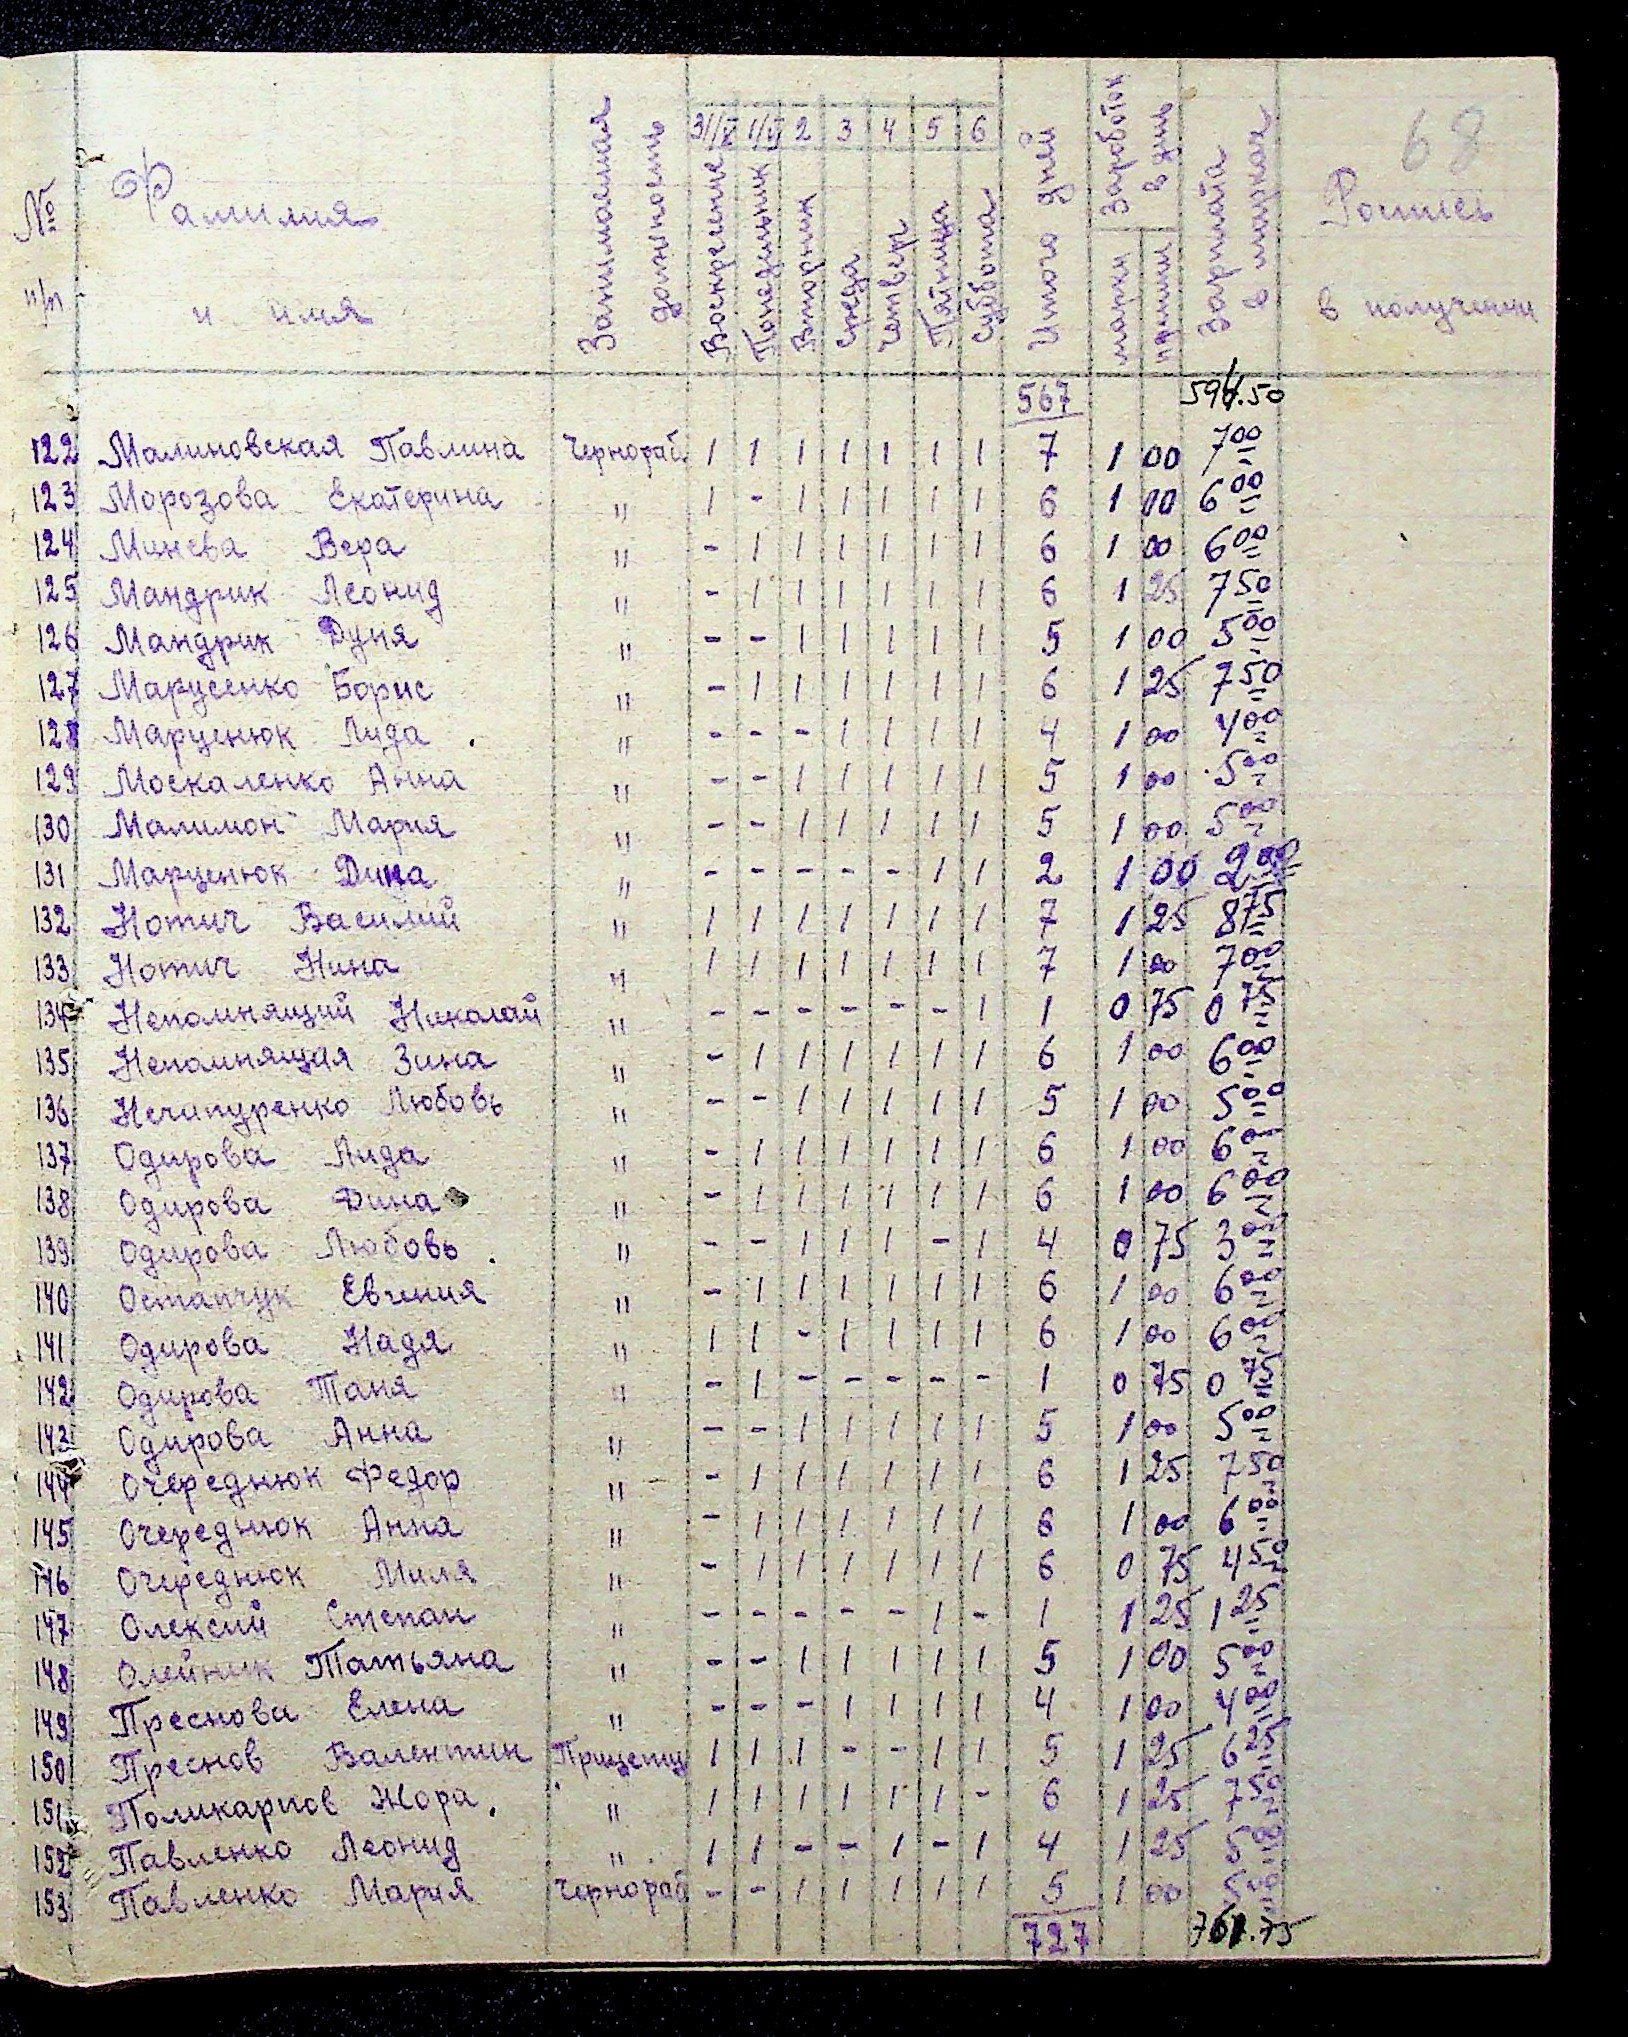 68
№ п/п Фамилия и имя Занимаемая должность 31/V 1/VI 2 3 4 5 6 Итого дней Заработок в день Зарплата в марках Роспись в получении
Воскресение Понедельник Вторник Среда Четверг Пятница Суббота марки пфениги
567 594.50
122 Малиновская Павлина Чернораб. 1 1 1 1 1 1 1 7 1 00 7 00
123 Морозова Екатерина " 1 - 1 1 1 1 1 6 1 00 6 00
124 Минева Вера " - 1 1 1 1 1 1 6 1 00 6 00
125 Мандрик Леонид " - 1 1 1 1 1 1 6 1 25 7 50
126 Мандрик Дуня " - - 1 1 1 1 1 5 1 00 5 00
127 Марусенко Борис " - 1 1 1 1 1 1 6 1 25 7 50
128 Марценюк Лида " - - - 1 1 1 1 4 1 00 4 00
129 Москаленко Анна " - - 1 1 1 1 1 5 1 00 5 00
130 Малимон Мария " - - 1 1 1 1 1 5 1 00 5 00
131 Марценюк Дина " - - - - - 1 1 2 1 00 2 00
132 Нотич Василий " 1 1 1 1 1 1 1 7 1 25 8 75
133 Нотич Нина " 1 1 1 1 1 1 1 7 1 00 7 00
134 Непомнящий Николай " - - - - - - 1 1 0 75 0 75
135 Непомнящая Зина " - 1 1 1 1 1 1 6 1 00 6 00
136 Нечипуренко Любовь " - - 1 1 1 1 1 5 1 00 5 00
137 Одирова Лида " - 1 1 1 1 1 1 6 1 00 6 00
138 Одирова Дина " - 1 1 1 1 1 1 6 1 00 6 00
139 Одирова Любовь " - - 1 1 1 - 1 4 0 75 3 00
140 Остапчук Евгения " - 1 1 1 1 1 1 6 1 00 6 00
141 Одирова Надя " 1 1 - 1 1 1 1 6 1 00 6 00
142 Одирова Таня " - 1 - - - - - 1 0 75 0 75
143 Одирова Анна " - - 1 1 1 1 1 5 1 00 5 00
144 Очереднюк Федор " - 1 1 1 1 1 1 6 1 25 7 50
145 Очереднюк Анна " - 1 1 1 1 1 1 6 1 00 6 00
146 Очереднюк Миля " - 1 1 1 1 1 1 6 0 75 4 50
147 Олексий Степан " - - - - - 1 - 1 1 25 1 25
148 Олейник Татьяна " - - 1 1 1 1 1 5 1 00 5 00
149 Преснова Елена " - - - 1 1 1 1 4 1 00 4 00
150 Преснов Валентин Прицепщ 1 1 1 - - 1 1 5 1 25 6 25
151 Поликарпов Жора " 1 1 1 1 1 1 - 6 1 25 7 50
152 Павленко Леонид " 1 1 - - 1 - 1 4 1 25 5 00
153 Павленко Мария Чернораб - - 1 1 1 1 1 5 1 00 5 00
727 761.75